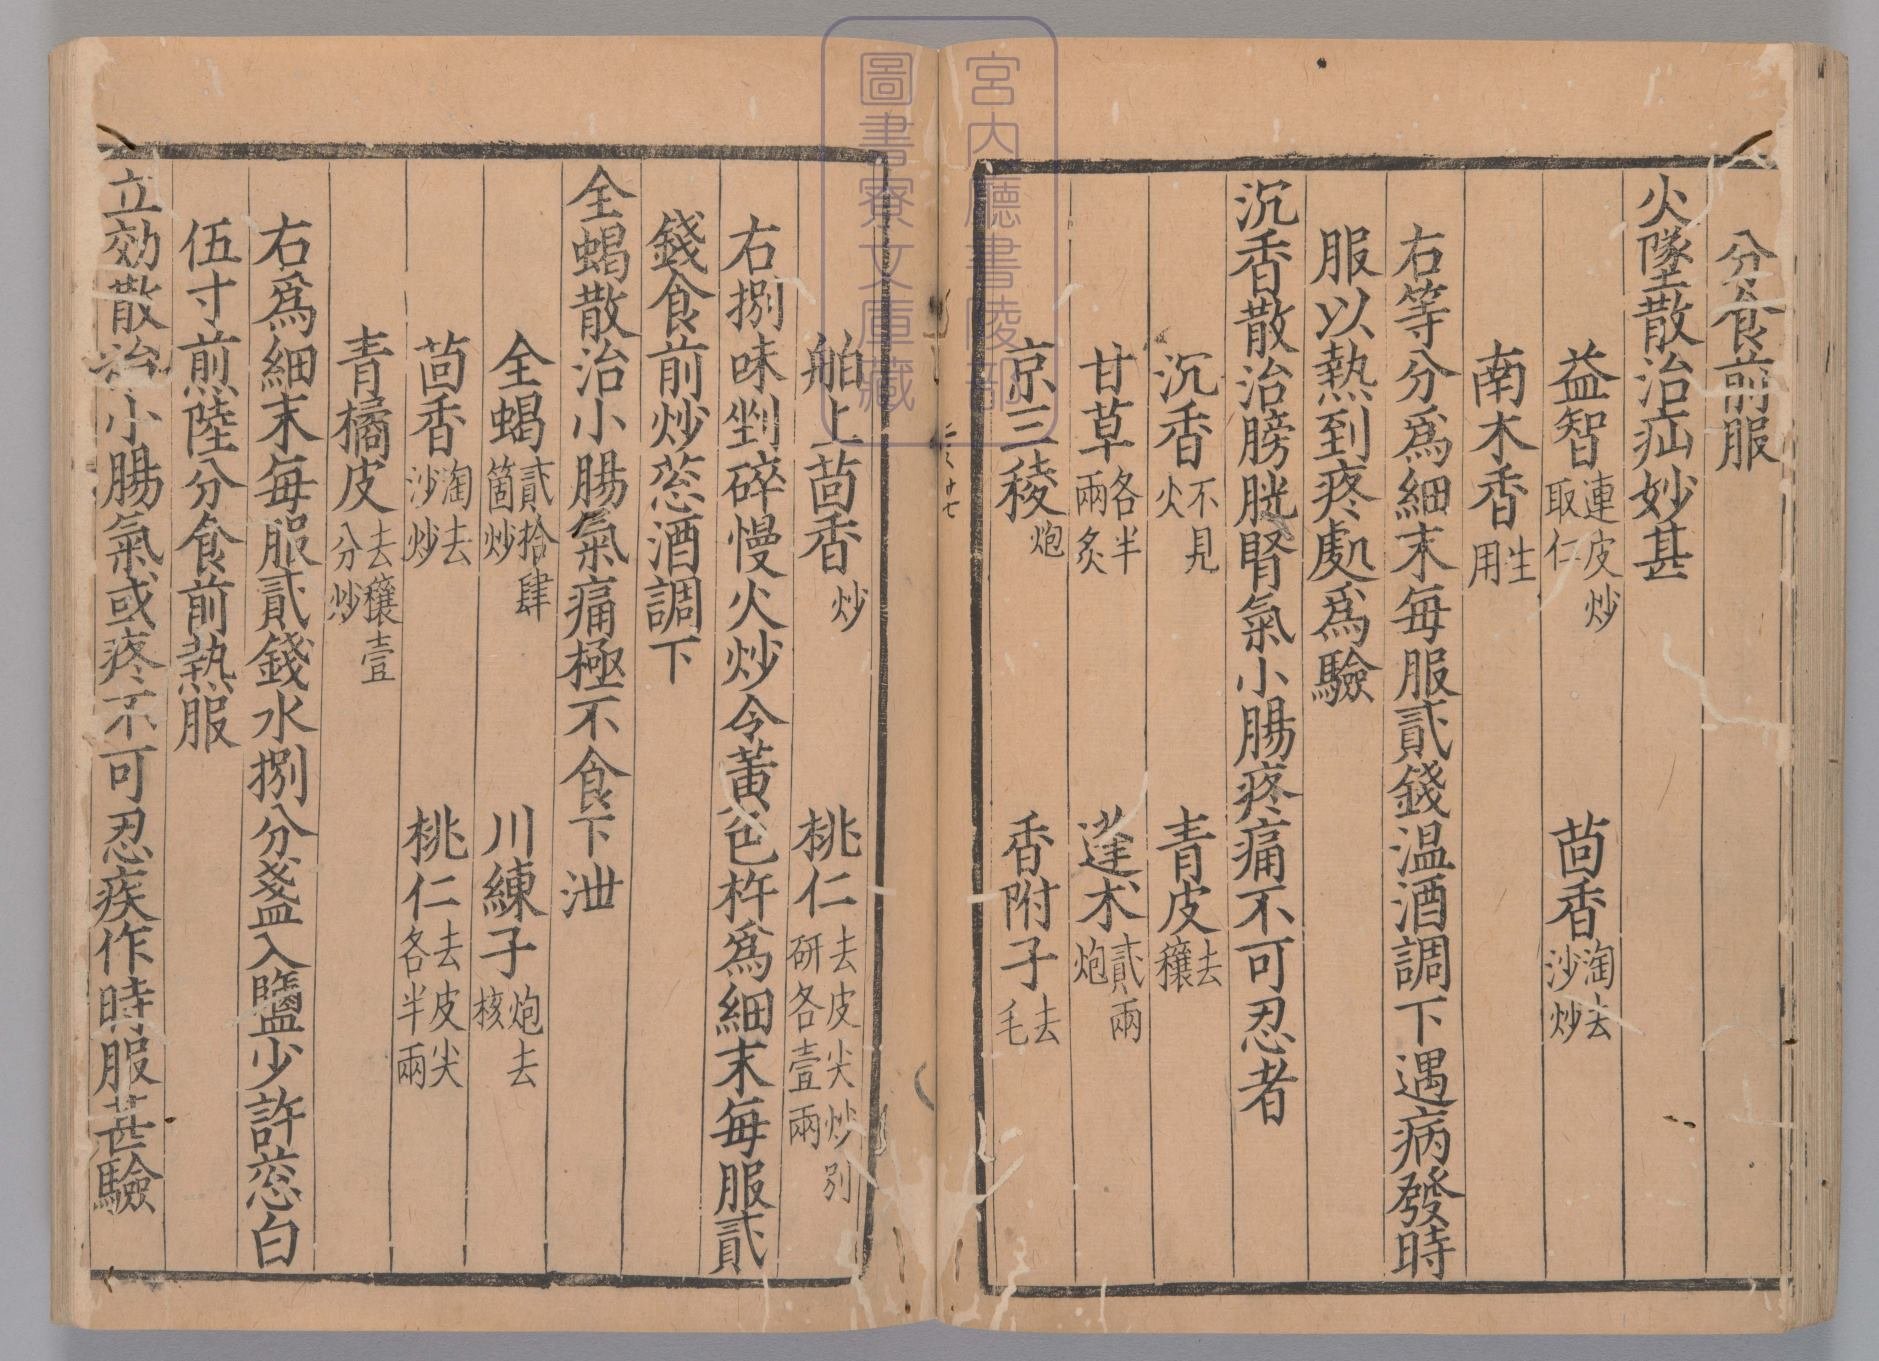 分食前服
火墜散治疝妙甚
益智連皮炒取仁 茴香淘去沙炒
南木香生用
右等分爲細末每服貳錢温酒調下遇病發時
服以熱到疼處爲驗
沉香散治膀胱腎氣小腸疼痛不可忍者
沉香不見火 青皮去穰
甘草各半兩炙 蓬朮貳兩炮
京三稜炮 香附子去毛
舶上茴香炒 桃仁去皮尖炒別研各壹兩
右捌味剉碎慢火炒令黃色杵爲細末每服貳
錢食前炒葱酒調下
全蝎散治小腸氣痛極不食下泄
全蝎貳拾肆箇炒 川練子炮去核
茴香淘去沙炒 桃仁去皮尖各半兩
青橘皮去穰壹分炒
右爲細末每服貳錢水捌分盞入鹽少許葱白
伍寸煎陸分食前熱服
立効散治小腸氣或疼不可忍疾作時服甚驗
宮内廳書陵部
圖書寮文庫藏